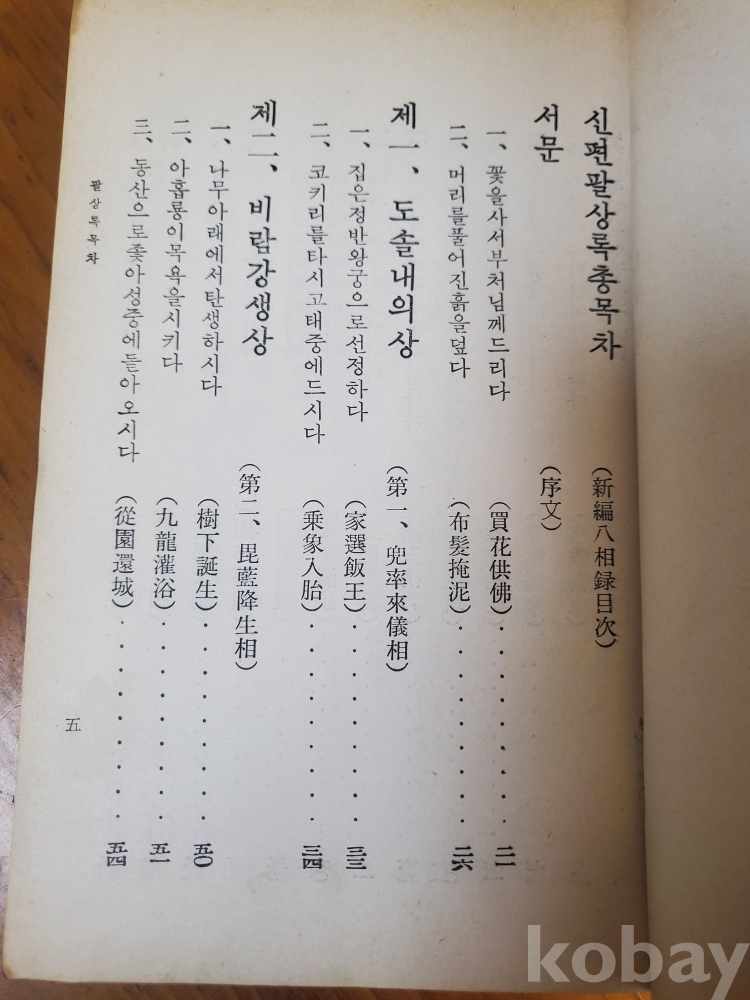 신편팔상록총목차 (新編八相録目次)
서문 (序文)
一、꽃을사서부처님께드리다 (買花供佛)・・・・・・・・・二一
二、머리를풀어진흙을덮다 (布髮掩泥)・・・・・・・・・二六
제一、도솔내의상 (第一、兜率來儀相)
一、집은정반왕궁으로선정하다 (家選飯王)・・・・・・・・・三三
二、코키리를타시고태중에드시다 (乗象入胎)・・・・・・・・・三四
제二、비람강생상 (第二、毘藍降生相)
一、나무아래에서탄생하시다 (樹下誕生)・・・・・・・・・五〇
二、아홉룡이목욕을시키다 (九龍灌浴)・・・・・・・・・五一
三、동산으로좇아성중에돌아오시다 (從園還城)・・・・・・・・・五四
팔상록목차
五
kobay